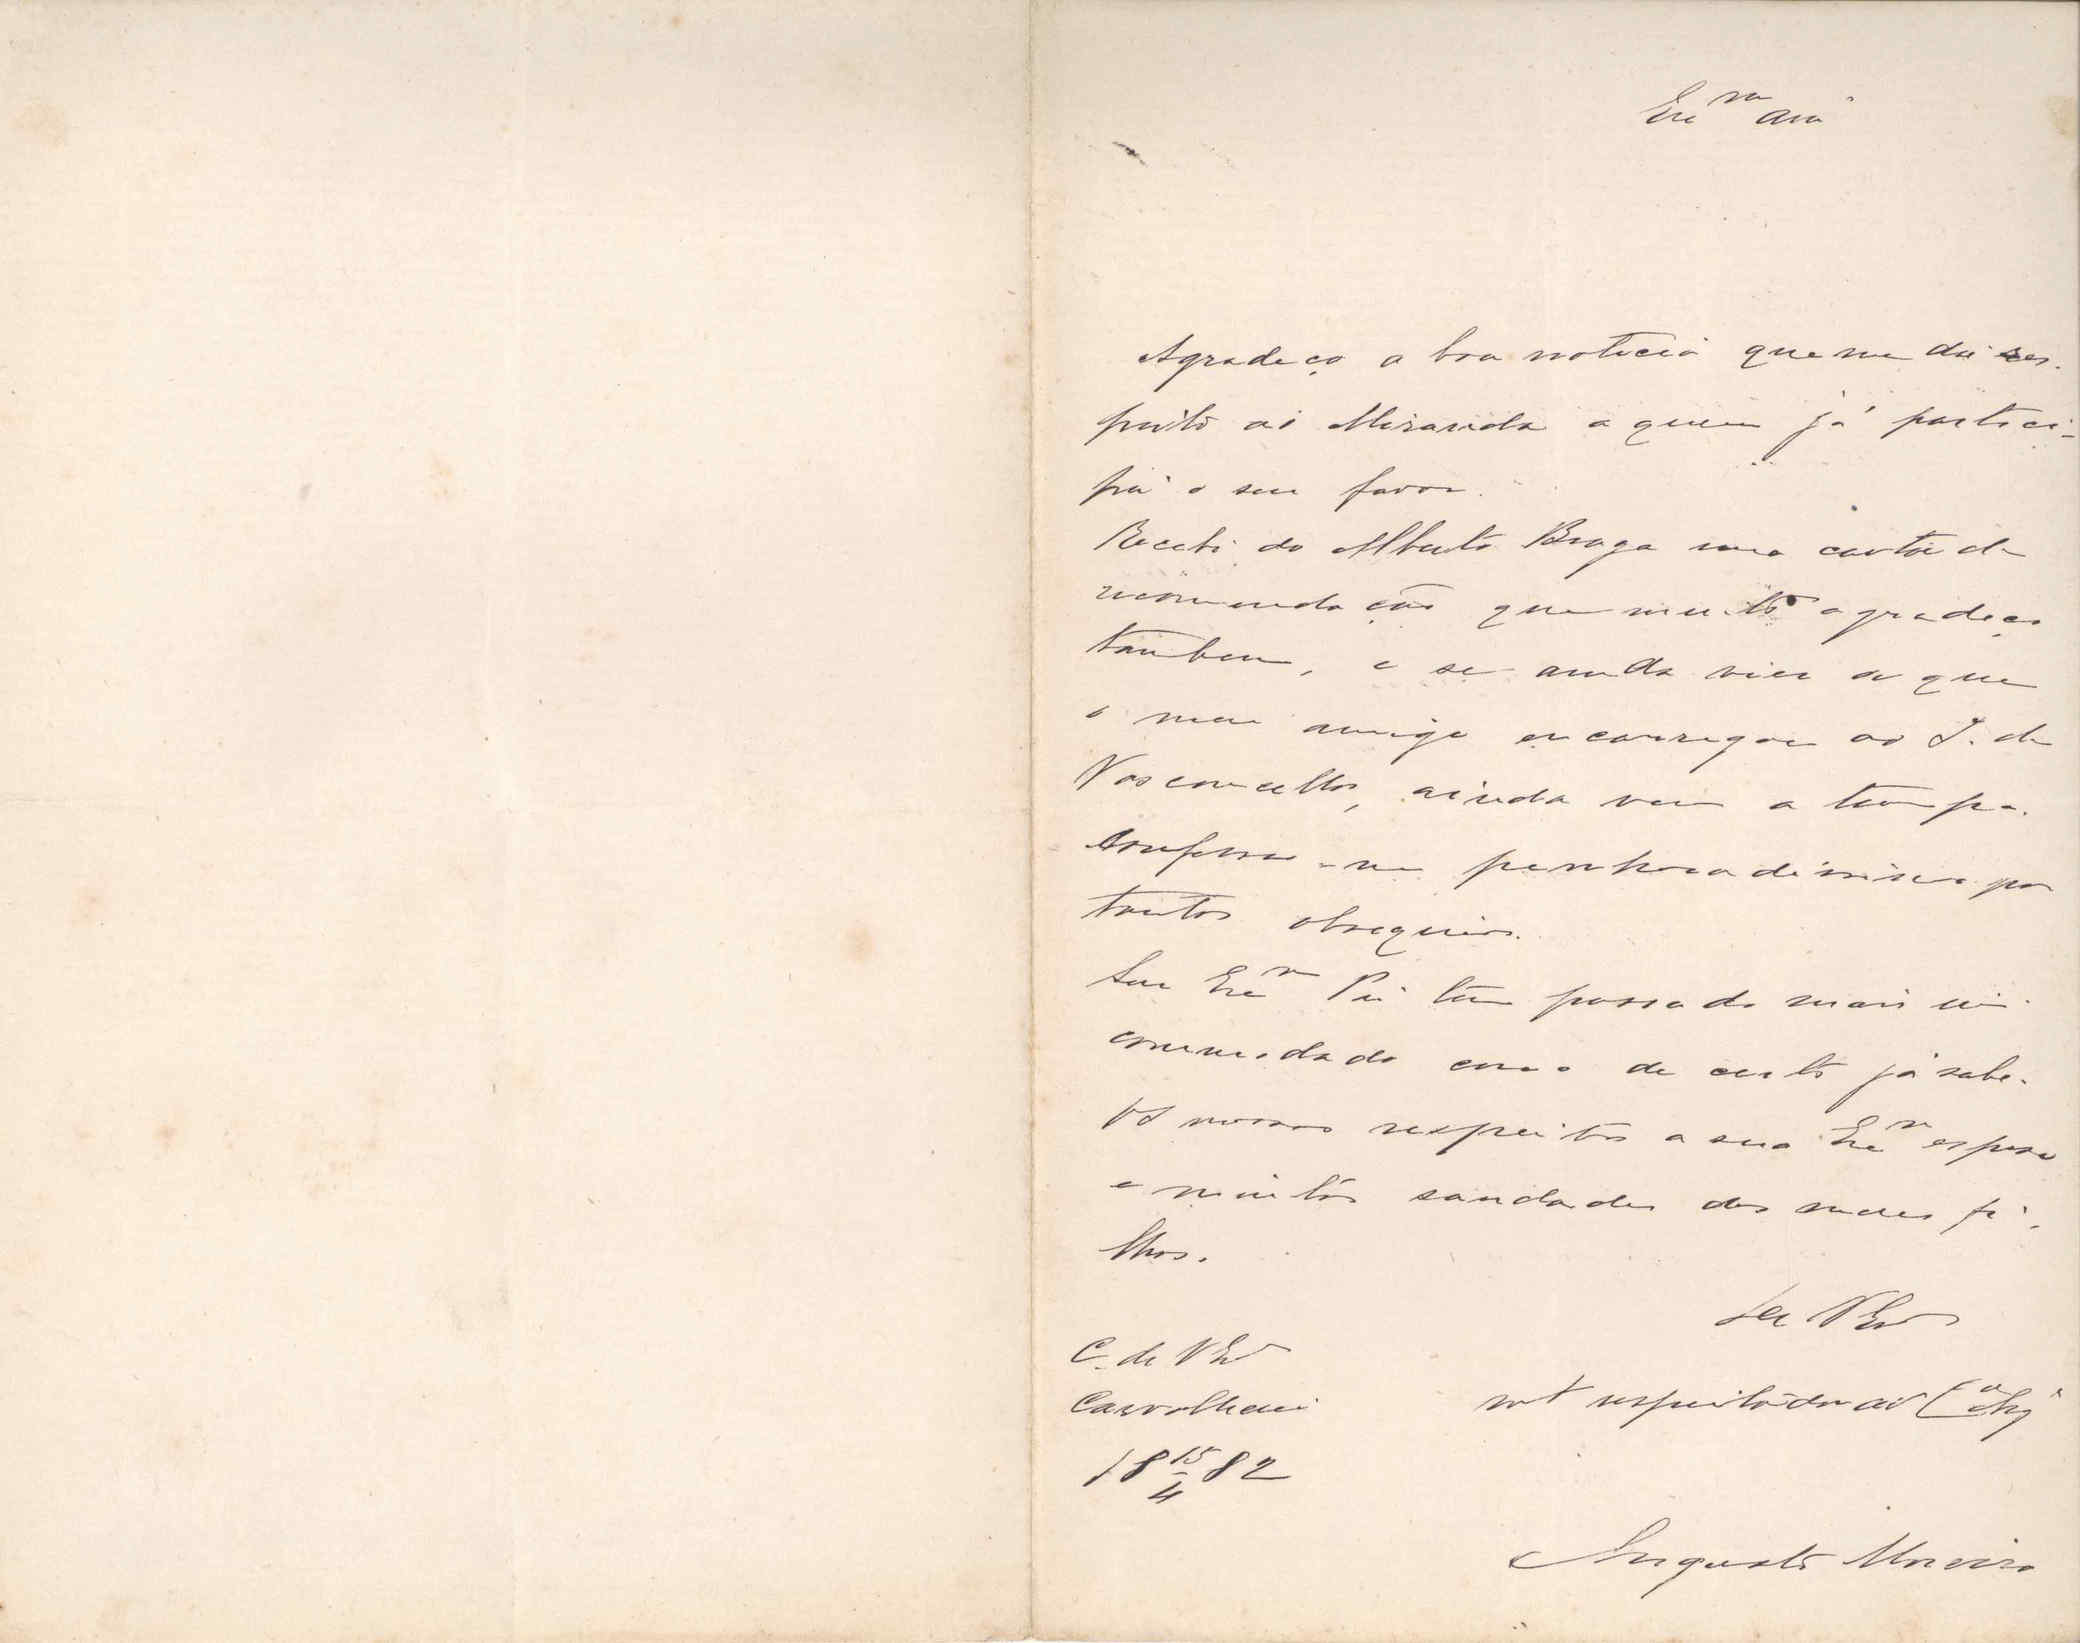 Exmo Amo
Agradeço a boa noticia que me dá res-
peito ao Miranda a quem já partici-
pei o seu favor.
Recebi do Alberto Braga uma carta de
recommendação que muito agradeço
tambem, e se ainda vier a que
o meu amigo encarregou ao J. de
Vasconcellos, ainda vem a tempo.
Confesso-me penhoradissimo por
tantos obsequios.
Seu Exmo Pai tem passado mais in-
commodado como de certo já sabe.
Os nossos respeitos a sua Exma esposa
e muitas saudades dos meus fi-
lhos.
De V Exa
C. de V Exa
Carvalhaes
mto respeitador
18 15/4 82
Augusto Moreira